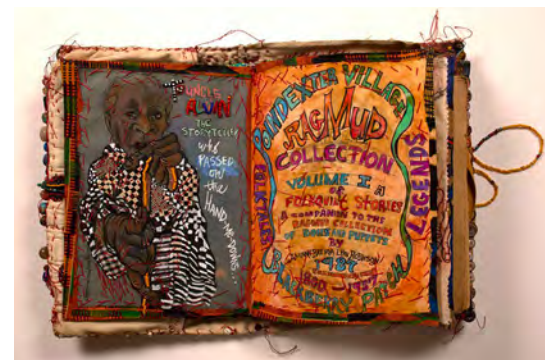 UNCLE
ALVIN
THE
STORYTELLER
who
PASSED
ON
the
HAND-ME-DOWNS...
POINDEXTER VILLAGE
RAGMUD
COLLECTION
VOLUME I
OF
FOLKQUILT STORIES
A COMPANION TO THE
RAGMUD COLLECTION
OF DOMS AND PUPPETS
BY
1987
1800-1957
BLACKBERRY PATCH
LEGENDS